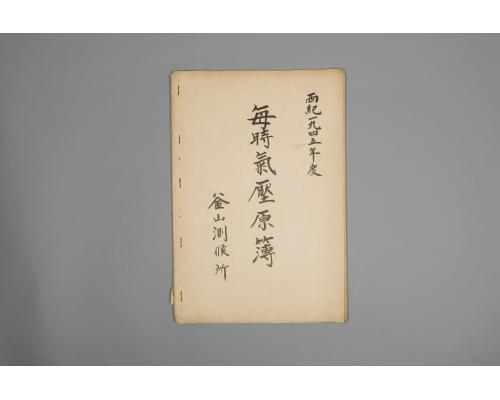 西紀一九四五年度
毎時氣壓原簿
釜山測候所